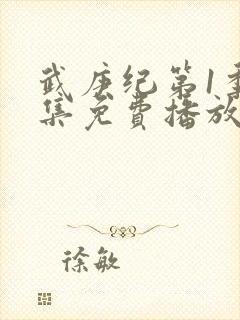 武庚纪第1季
集免费播放
徐敏